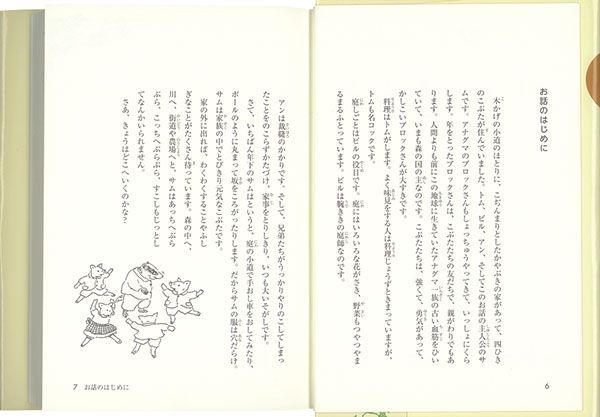 お話のはじめに
木かげの小道のほとりに、こぢんまりとしたかやぶきの家があって、四ひき
のこぶたが住んでいました。トム、ビル、アン、そしてこのお話の主人公のサ
ムです。アナグマのブロックさんもしょっちゅうやってきて、いっしょにくら
します。年をとったブロックさんは、こぶたたちの友だちで、親がわりでもあ
ります。人間よりも前にこの地球に生きていたアナグマ一族の古い血筋をひい
ていて、いまも森の国の主なのです。こぶたたちは、強くて、勇気があって、
かしこいブロックさんが大すきです。
料理はトムがします。よく味見をする人は料理じょうずときまっていますが、
トムも名コックです。
庭しごとはビルの役目です。庭にはいろいろな花がさき、野菜もつやつやま
るまるふとっています。ビルは腕ききの庭師なのです。
6
アンは裁縫のかかりです。そして、兄弟たちがうっかりやりのこしてしまっ
たことをのこらずかたづけ、家事をとりしきり、いつも大いそがしです。
さて、いちばん年下のサムはというと、庭の小道で手おし車をおしてみたり、
ボールのように丸まって坂をころがったりします。だからサムの服は穴だらけ。
サムは家族の中でとびきり元気なこぶたです。
家の外に出れば、わくわくすることやふし
ぎなことがたくさん待っています。森の中へ、
川へ、街道や農場へと、サムはあっちへぶら
ぶら、こっちへぶらぶら、すこしもじっとし
てなんかいられません。
さあ、きょうはどこへいくのかな？
7 お話のはじめに